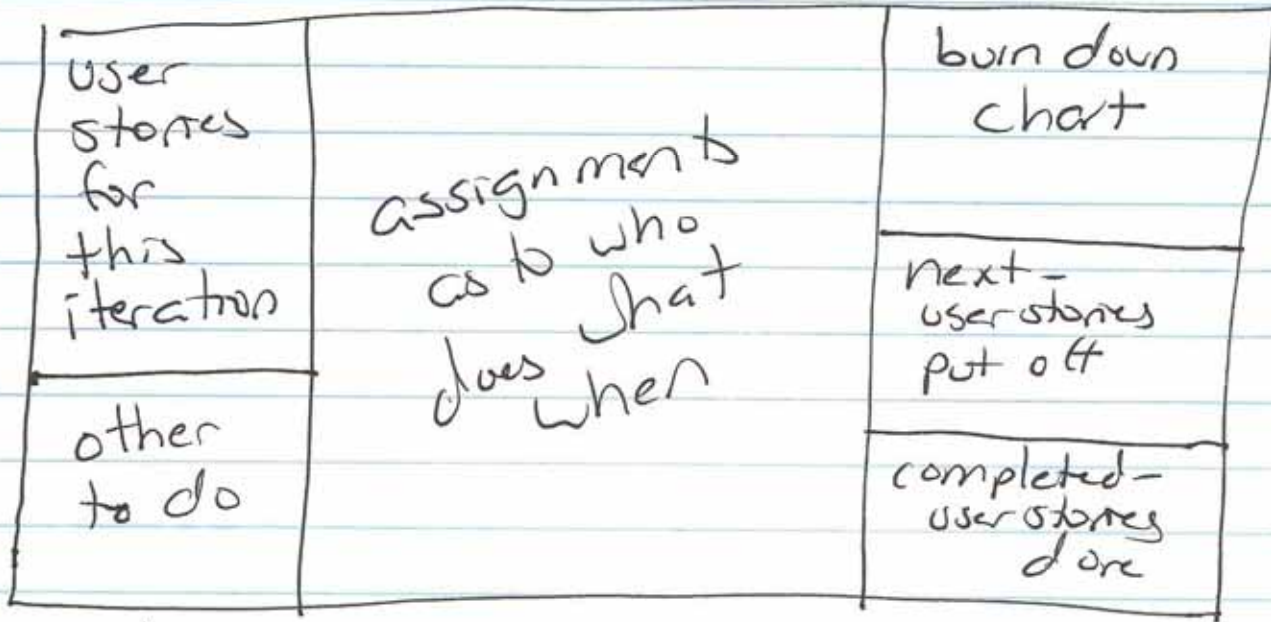 user
stories
for
this
iteration
other
to do
assignments
as to who
does what
when
burn down
chart
next -
user stories
put off
completed -
user stories
done